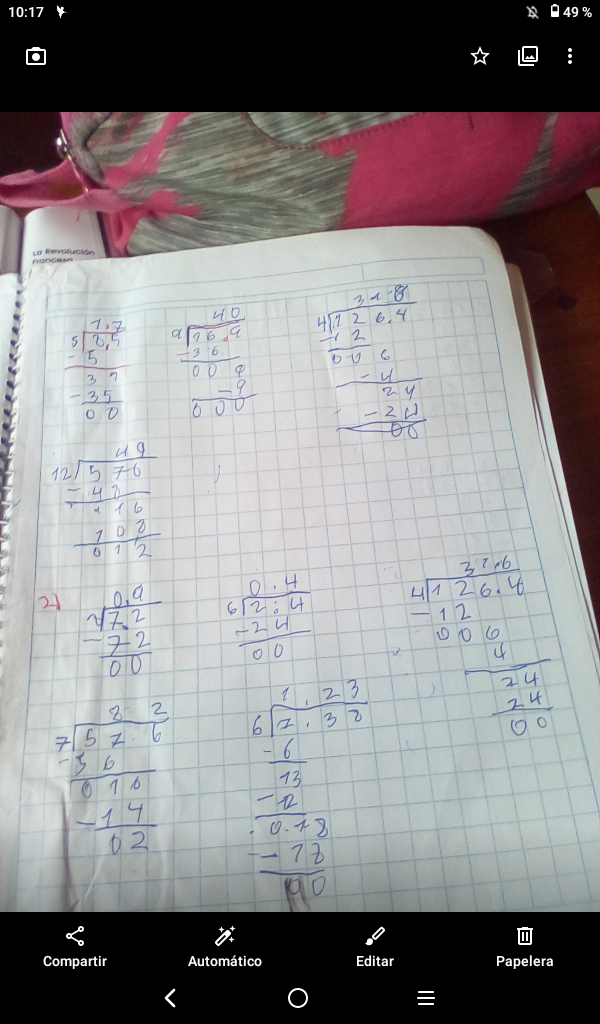 10:17
49 %
La Revolución
Francesa
1.7
5 8.5
- 5
3 5
- 35
0 0
4 0
9 36.9
- 36
0 0 9
- 9
0 0 0
3 1.
4 1 2 6.4
- 1 2
0 0 6
- 4
2 4
- 2 4
0 0
4 9
12 5 7 6
- 4 8
1 6
1 0 8
0 1 2
2)
0.9
7.2
- 7 2
0 0
0.4
6 2.4
- 2 4
0 0
3 1.6
4 1 2 6.4
- 1 2
0 0 6
4
2 4
2 4
0 0
8.2
7 5 7.6
- 5 6
0 1 6
- 1 4
0 2
1.23
6 7.38
- 6
1 3
- 1 2
0.18
- 18
0 0
Compartir
Automático
Editar
Papelera